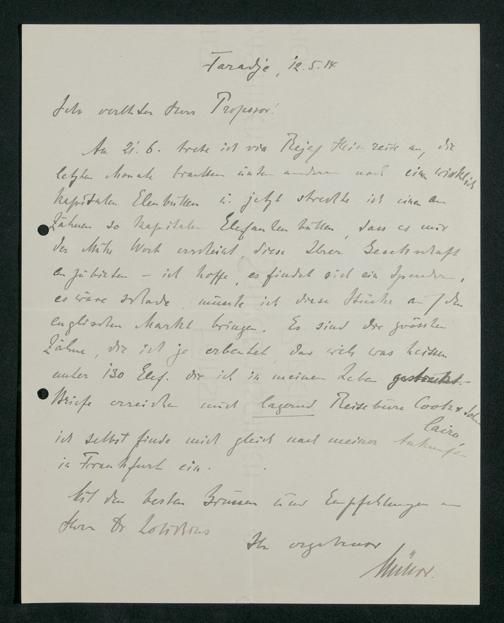 Faradje, 12.5.14
Sehr verehrter Herr Professor!
Am 21. 6. trete ich via Rejaf Heimreise an, die
letzten Monate brachten unter anderem noch einen wirklich
kapitalen Elenbullen u. jetzt streckte ich einen an
Zähnen so kapitalen Elefantenbullen, dass es mir
der Mühe Wert erscheint diese Ihrer Gesellschaft
anzubieten – ich hoffe, es findet sich ein Spender,
es wäre schade, müsste ich diese Stücke auf den
englischen Markt bringen. Es sind die grössten
Zähne, die ich je erbeutet, das will was heissen
unter 130 Elef. die ich in meinem Leben gestreckt.
Briefe erreichen mich lagernd Reisebüro Cook & Son
Cairo,
ich selbst finde mich gleich nach meiner
in Frankfurt ein.
Mit den besten Grüssen und Empfehlungen an
Herrn Dr
Ihr ergebener
Müller.